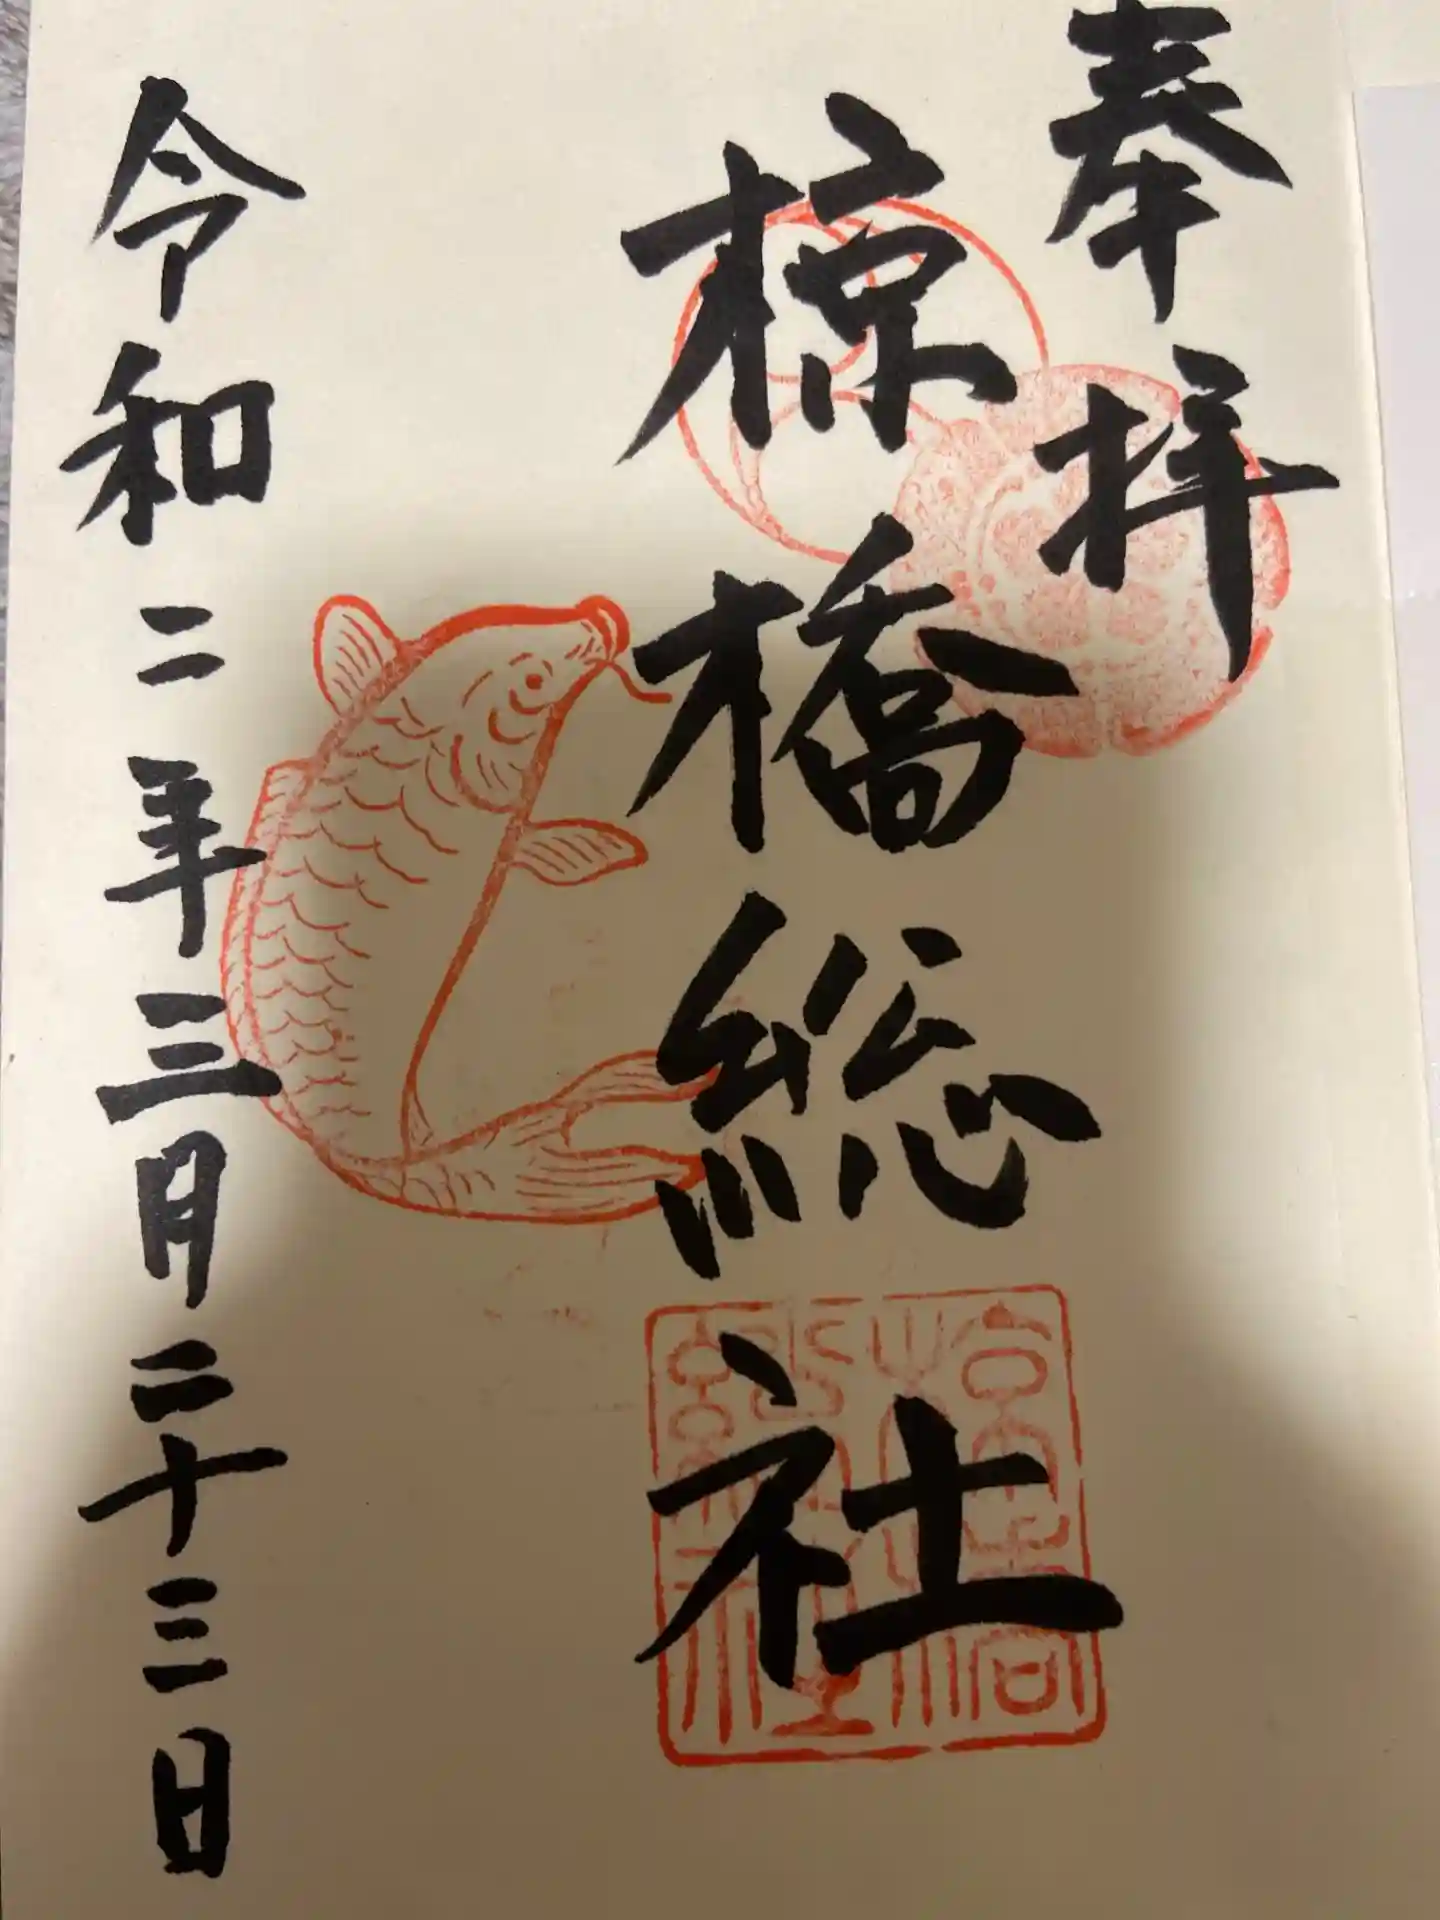 奉拝
椋橋総社
令和二年三月二十三日
椋橋総社